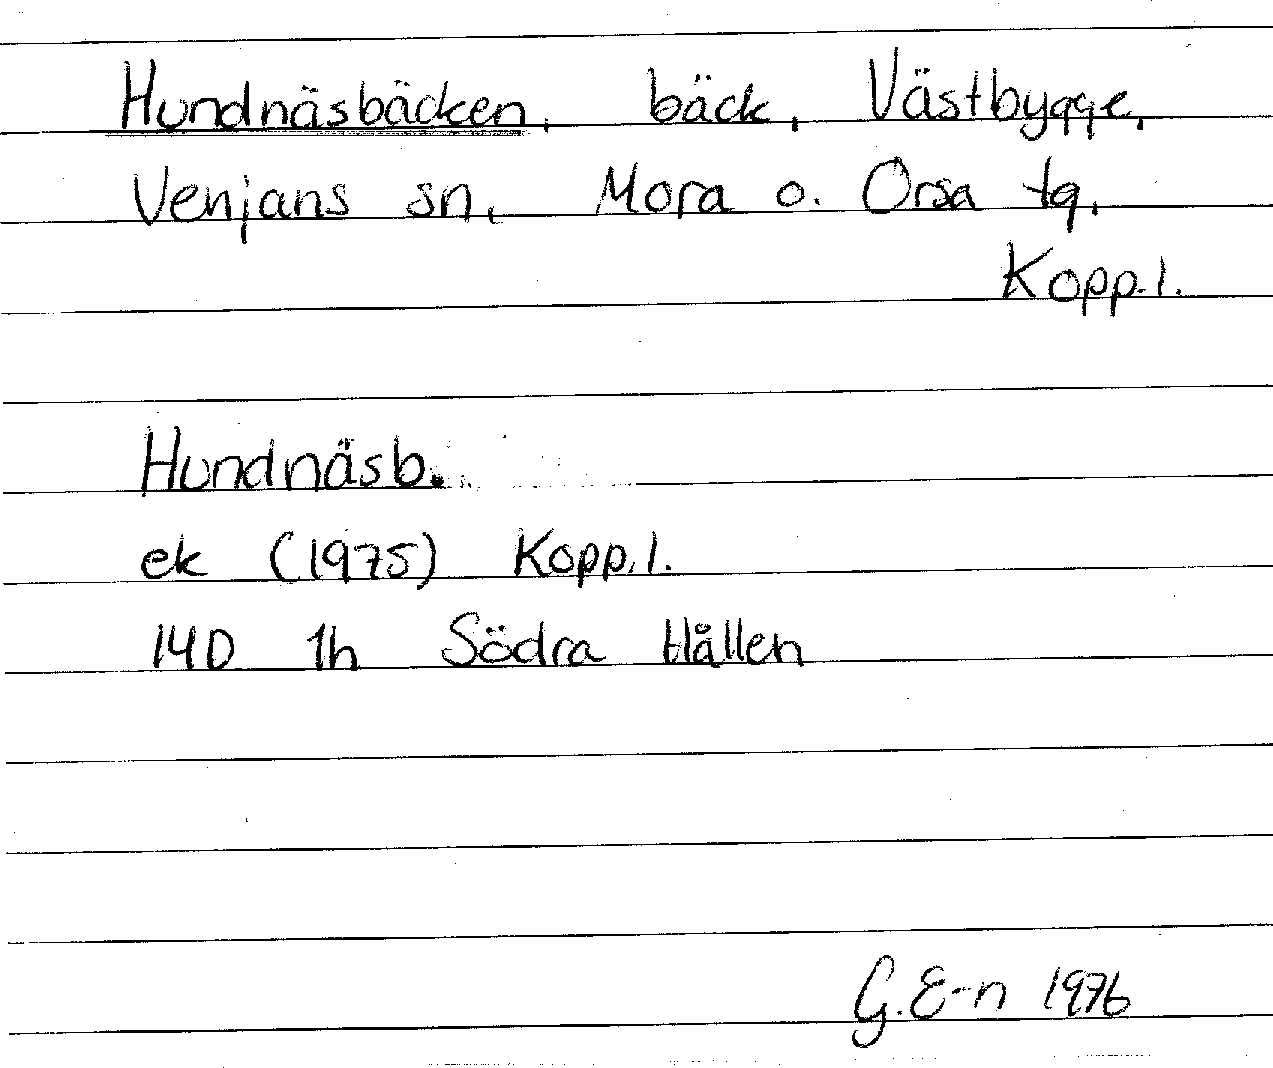 Hundnäsbäcken, bäck, Västbygge,
Venjans sn, Mora o. Orsa tg,
Kopp.l.
Hundnäsb.
ek (1975) Kopp.l.
14D 1h Södra Hållen
G.E-n 1976